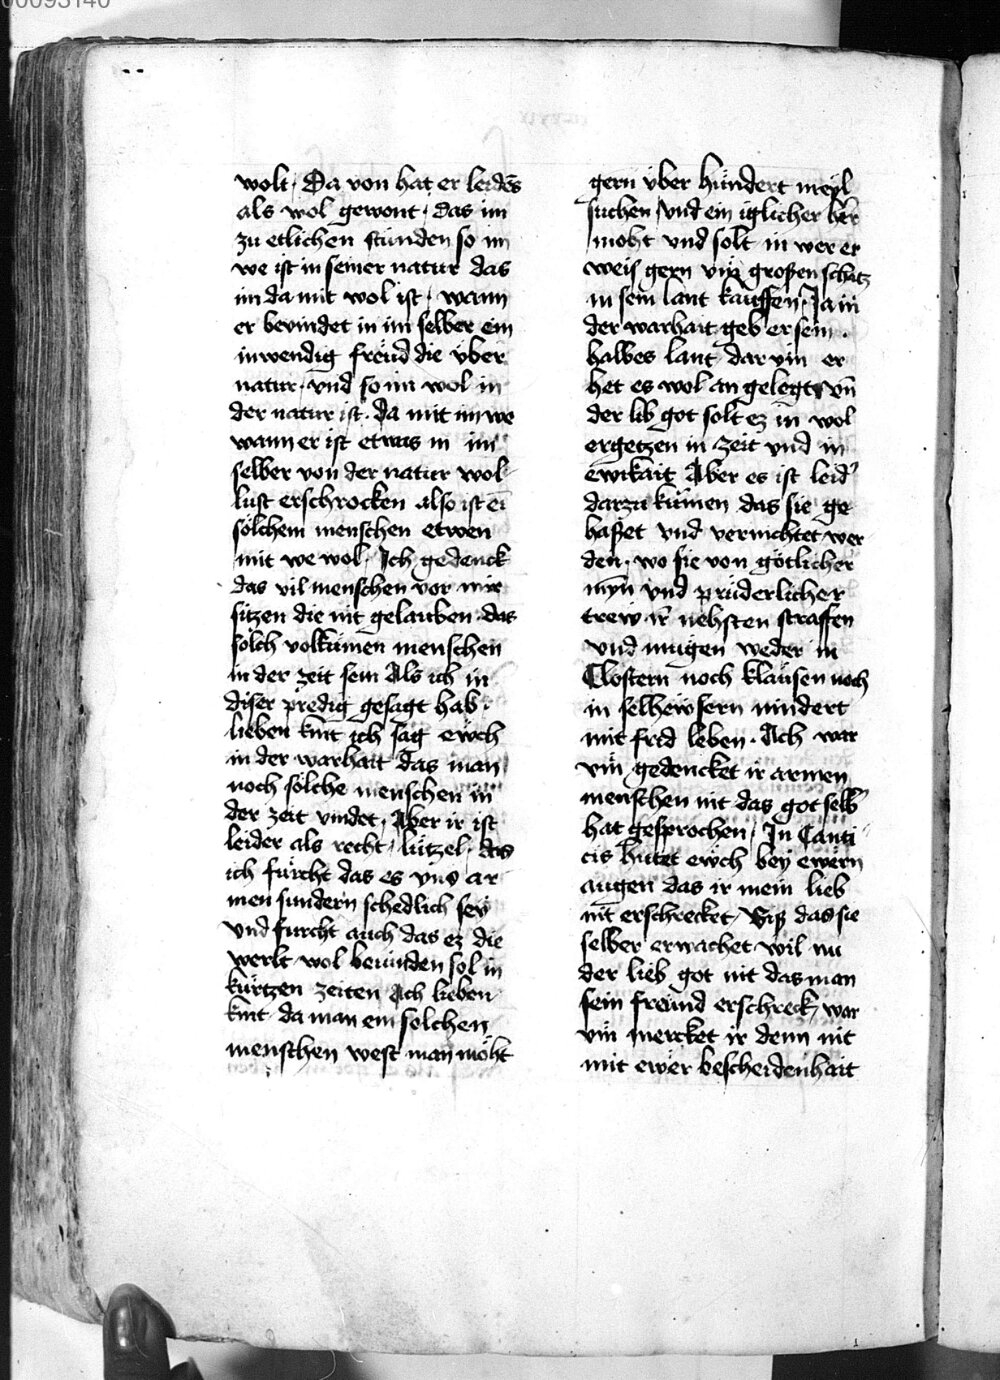 00093140
wolt · Da von hat er leides
als wol gewont · das im
zu etlichen stunden so im
we ist in seiner natur das
im da mit wol ist · wann
er bevindet in im selber ein
inwendig freüd die über
natur · vnd so im wol in
der natur ist · da mit im we
wann er ist etwas in im
selber von der natur wol
lust erschrocken also ist ei
sölchem menschen etwen
mit we wol · Ich gedenck
das vil menschen vor mir
sitzen die nit gelauben · das
solch volkümen menschen
in der zeit sein Als ich in
diser predig gesagt hab ·
lieben kint ich sag ewch
in der warhait das man
noch sölche menschen in
der zeit vindet · Aber ir ist
leider als recht / lützel · das
ich fürcht das es vns ar
men sundern schedlich sey
vnd furcht auch das ez die
werlt wol bevinden sol in
kürtzen zeiten Ach lieben
kint da man ein solchen
menschen west man möht
gern über hündert meyl
suchen / vnd ein iglicher her̄
moht vnd solt in wer er
weis gern vm̄ großen schatz
in sein lant kauffen · Ja in
der warhait geb er sein ·
halbes lant dar vm er
het es wol an gelegt vn̄
der lib got solt ez in wol
ergetzen in zeit vnd in
ewikait Aber es ist leid'
darzu kumen das sie ge
haßet vnd vernichtet wer
den · wo sie von götlicher
myn̄ vnd prüderlicher
trew ir nehsten straffen
vnd mügen weder in
Clostern noch klausen noch
in selhewsern nindert
mit frid leben · Ach war
vm gedencket ir armen
menschen nit das got selb'
hat gesprochen / In Canti
cis hütet ewch bey ewern
augen das ir mein lieb
nit erschrecket / Biß das sie
selber erwachet wil nu
der lieb got nit das man
sein freünd erschreck / war
vm mercket ir denn nit
mit ewer bescheidenhait